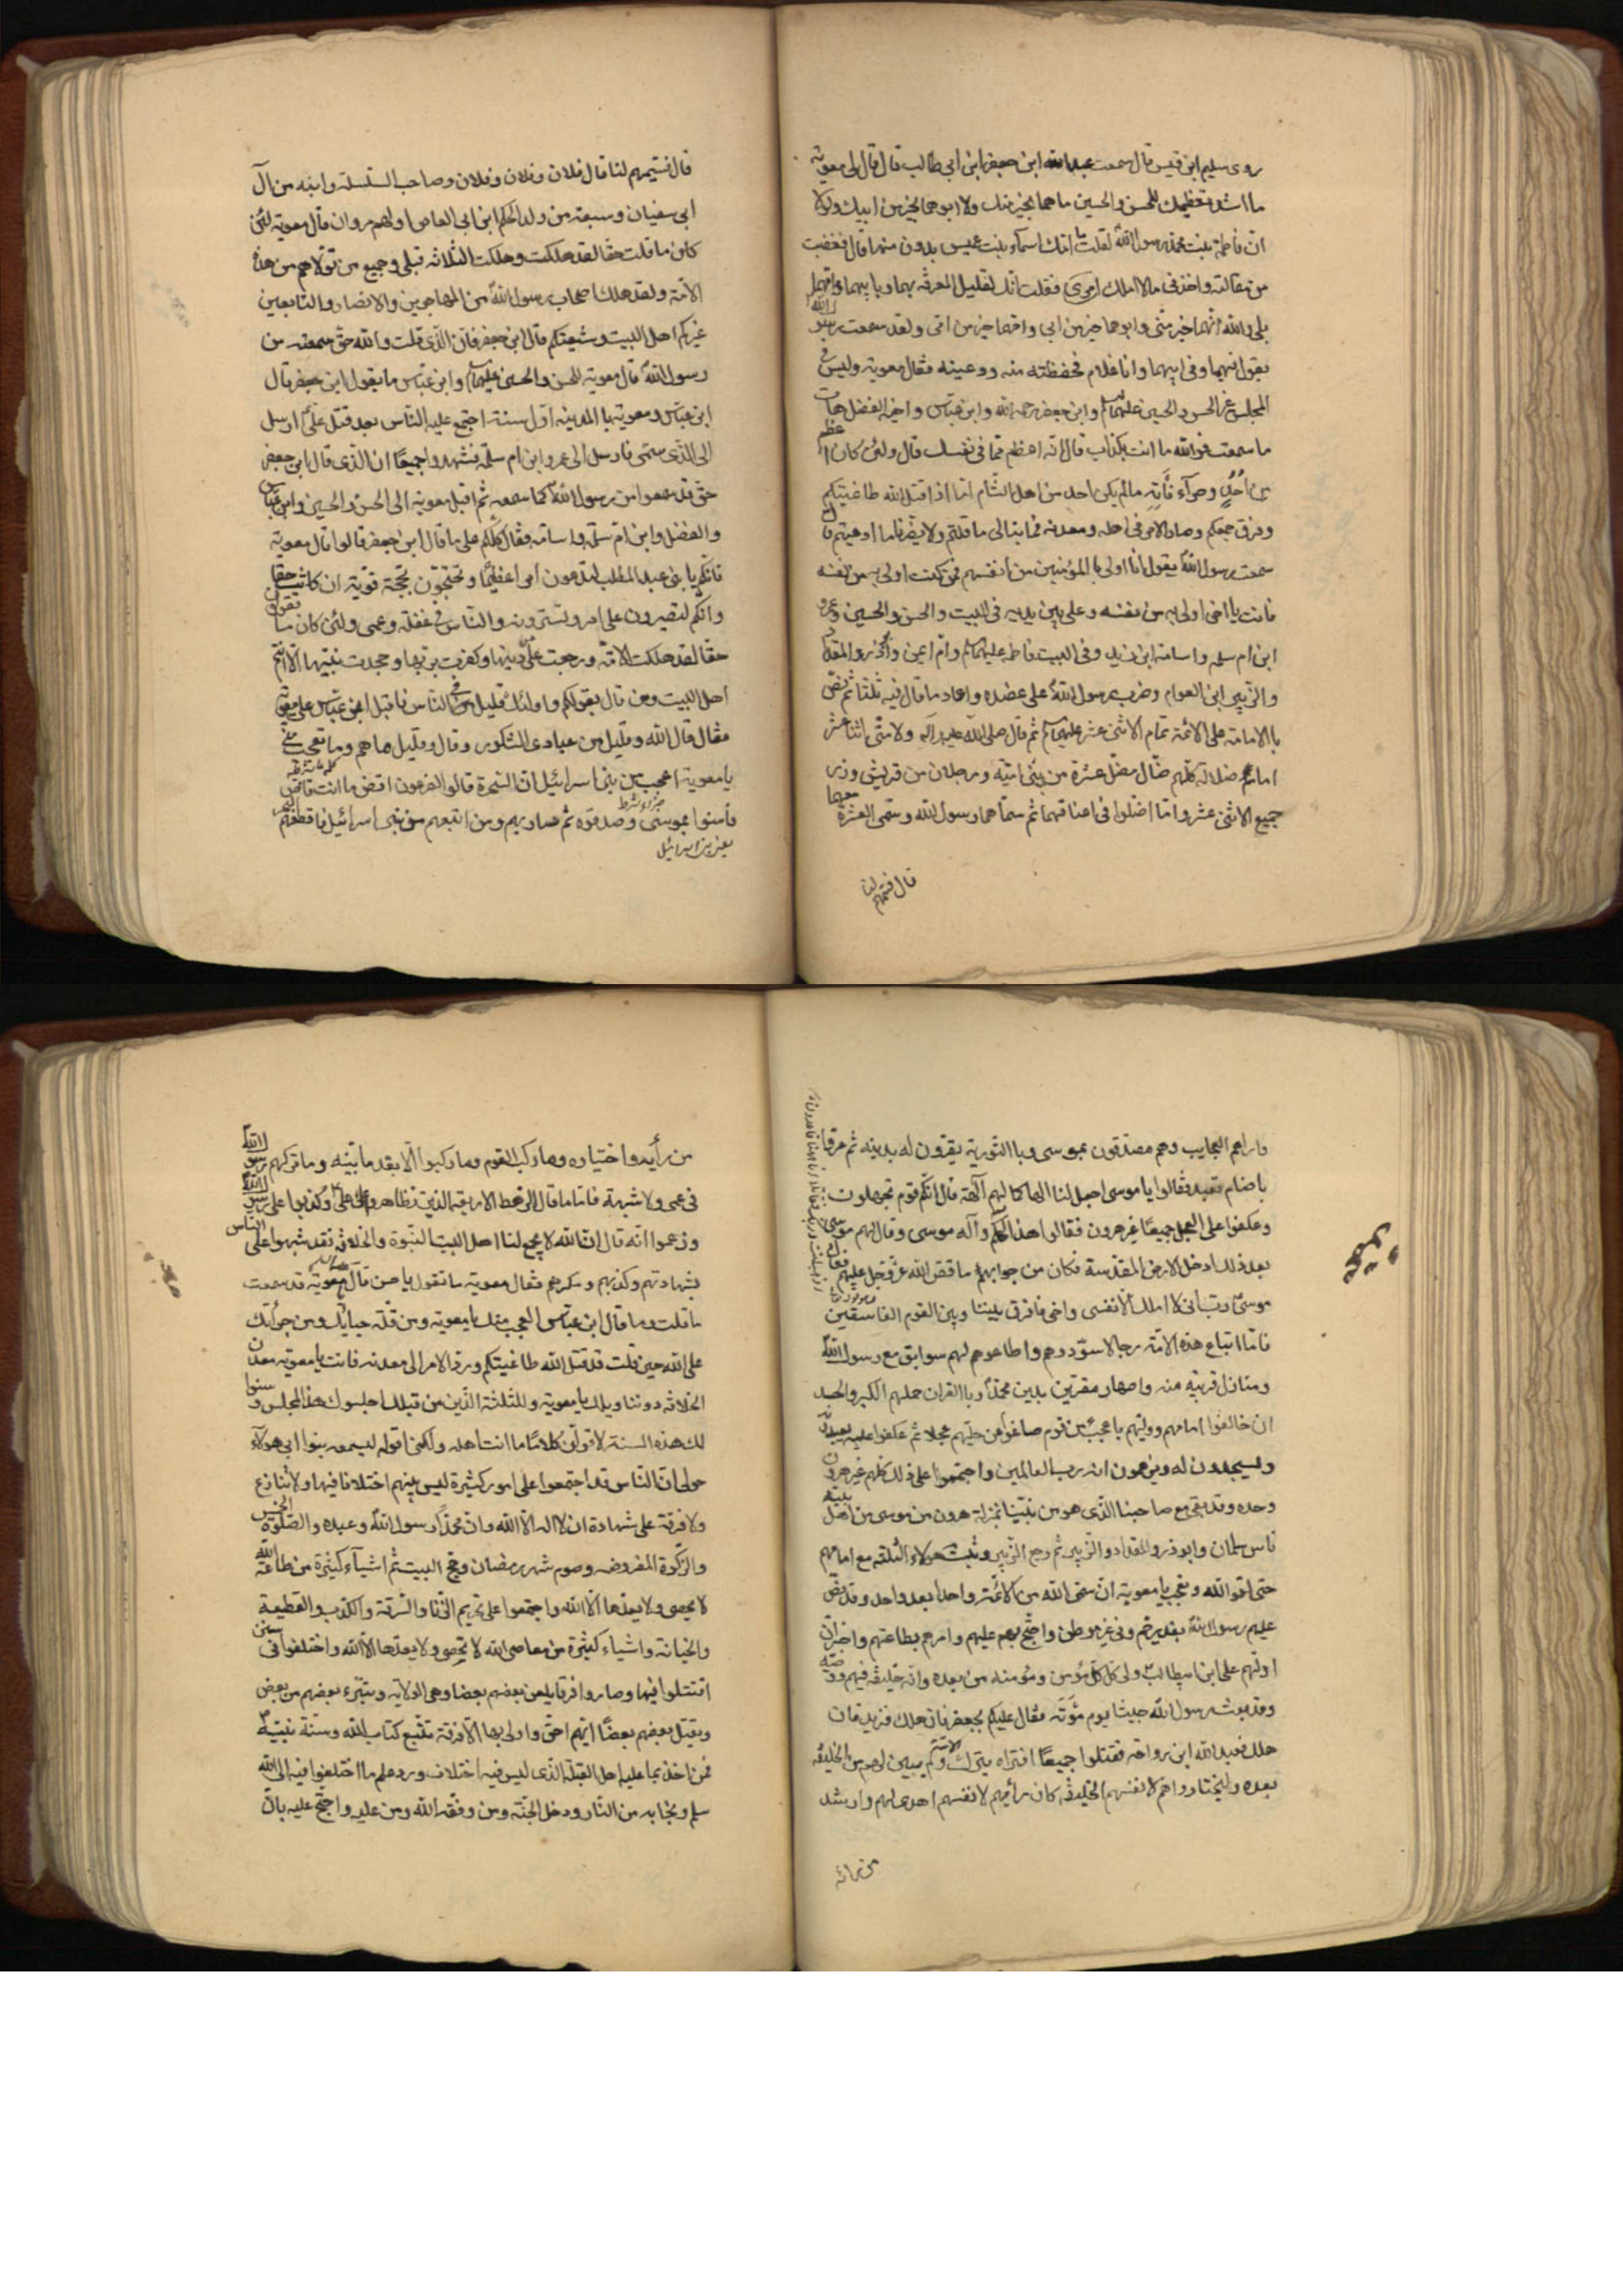 روى سليم ابن قيس قال سمعت عبد الله ابن جعفر ابن ابى طالب قال قال لى معوية
ما اشد تعظيمك للحسن والحسين ما هما بخير منك ولا ابوهما بخير من ابيك ولولا
ان فاطمة بنت محمد رسول الله لقلت ما امك اسماء بنت عميس بدون منها قال فغضبت
من مقالته واخذنى مالا املك فقلت انك لقليل المعرفة بهما وبابيهما وامهما
بلى والله انهما خير منى وابوهما خير من ابى وامهما خير من امى ولقد سمعت رسول الله
يقول فيهما وفى ابيهما وانا غلام فحفظته منه ووعيته فقال معوية وليس فى
المجلس غير الحسن والحسين عليهما السلام وابن جعفر رحمه الله وابن عباس واخيه الفضل هات
ما سمعت فوالله ما انت بكذاب قال انه اعظم مما فى نفسك قال ولئن كان اعظم
من احد وحراء فاته مالم يكن احد من اهل الشام اما اذا قتل الله طاغيتكم
وفرق جمعكم وصار الامر فى اهله ومعدنه فما نبالى ما قلتم ولا يضرنا ما ادعيتم قال
سمعت رسول الله يقول انا اولى بالمؤمنين من انفسهم فمن كنت اولى به من نفسه
فانت يا اخى اولى به من نفسه وعلى بين يديه فى البيت والحسن والحسين وعمرو
ابن ام سلمه واسامة ابن زيد وفى البيت فاطمه عليها السلام وام ايمن وابوذر والمقداد
والزبير ابن العوام وضرب رسول الله على عضده واعاد ما قال فيه ثلثا ثم نص
بالامامة على الائمة تمام الاثنى عشر عليهم السلام ثم قال صلى الله عليه وآله ولامتى اثنا عشر
امام ضلالة كلهم ضال مضل عشرة من بنى امية ورجلان من قريش وزر
جميع الاثنى عشر وما اضلوا فى اعناقهما ثم سماهما رسول الله وسمى العشرة معهما
قال فسمهم لنا
قال فسمهم لنا قال فلان وفلان وفلان وصاحب السلسلة وابنه من آل
ابى سفيان وسبعة من ولد الحكم ابن ابى العاص اولهم مروان قال معوية لئن
كان ما قلت حقا لقد هلكت وهلكت الثلاثة قبلى وجميع من تولاهم من هذه
الامة ولقد هلك اصحاب رسول الله من المهاجرين والانصار والتابعين
غيركم اهل البيت وشيعتكم قال ابن جعفر فان الذى قلت والله حق سمعته من
رسول الله قال معوية للحسن والحسين عليهما السلام وابن عباس ما يقول ابن جعفر قال
ابن عباس ومعوية بالمدينه اول سنة اجتمع عليه الناس بعد قتل على ارسل
الى الذى سمى فارسل الى عمرو ابن ام سلمة فشهدوا جميعا ان الذى قال ابن جعفر
حق قد سمعوا من رسول الله كما سمعه ثم اقبل معوية الى الحسن والحسين وابن عباس
والفضل وابن ام سلمه واسامه فقال كلكم على ما قال ابن جعفر قالوا قال معوية
فانكم يا بنى عبد المطلب لتدعون امرا عظيما وتحتجون بحجة قوية ان كانت حقا
وانكم لتصبرون على امر وتسترونه والناس فى غفلة وعمى ولئن كان ما تقولون
حقا لقد هلكت الامة ورجعت عن دينها وكفرت بربها وجحدت نبيها الا انتم
اهل البيت ومن قال بقولكم واولئك قليل فى الناس فاقبل ابن عباس على معوية
فقال قال الله وقليل من عبادى الشكور وقال وقليل ما هم وما تعجب منى
يا معوية اعجب من بنى اسرائيل ان السحرة قالوا لفرعون اقض ما انت قاض
فآمنوا بموسى وصدقوه ثم سار بهم ومن اتبعهم من بنى اسرائيل فاقطعهم البحر
واراهم العجايب وهم مصدقون بموسى وبالتورية يقرون له بدينه ثم مر قا
باصنام تعبد فقالوا يا موسى اجعل لنا الها كما لهم آلهة قال انكم قوم تجهلون
وعكفوا على العجل جميعا غير هرون فقالوا هذا الهكم وآله موسى وقال لهم موسى
بعد ذلك ادخلوا الارض المقدسة فكان من جوابهم ما قص الله عز وجل عليهم فقال
موسى رب انى لا املك الا نفسى واخى فافرق بيننا وبين القوم الفاسقين
فاما اتباع هذه الامة رجالا سودوهم واطاعوهم لهم سوابق مع رسول الله
ومنازل قريبة منه واصهار مقرين بدين محمد وبالقران حملهم الكبر والحسد
ان خالفوا امامهم ووليهم باعجب من قوم صاغوا من حليهم عجلا ثم عكفوا عليه يعبدونه
ويسجدون له ويزعمون انه رب العالمين واجتمعوا على ذلك كلهم غير هرون
وحده وقد بقى مع صاحبنا الذى هو من نبينا بمنزلة هرون من موسى من اهل بيته
ناس سلمان وابوذر والمقداد والزبير ثم رجع الزبير وثبت هولاء الثلثه مع امامهم
حتى لقوا الله وتعجب يا معوية ان سمى الله من الائمة واحدا بعد واحد وقد نص
عليهم رسول الله بغدير خم وفى غير موطن واحتج بهم عليهم وامرهم بطاعتهم واخبر ان
اولهم على ابن ابيطالب ولى كل مؤمن ومؤمنه من بعده وانه خليفته فيهم ووصيه
وقد بعث رسول الله جيشا يوم مؤتة فقال عليكم بجعفر فان هلك فزيد فان
هلك فعبد الله ابن رواحه فقتلوا جميعا افتراه يترك الامة ولم يبين لهم من الخليفه
بعده ليختاروا هم لانفسهم الخليفه كان رأيهم لانفسهم اهدى لهم وارشد
من رأيه
من رأيه واختياره وما ركب القوم وما ركبوا الا بعد ما بينه وما تركهم رسول الله
فى عمى ولا شبهة فاما ما قال الرهط الاربعة الذين تظاهروا على على وكذبوا على رسول الله
وزعموا انه قال ان الله لا يجمع لنا اهل البيت النبوة والخلافة فقد شبهوا على الناس
بشهادتهم وكذبهم ومكرهم فقال معوية ما تقول يا حسن قال يا معوية قد سمعت
ما قلت وما قال ابن عباس العجب منك يا معوية ومن قلة حيائك ومن جرأتك
على الله حين قلت قد قتل الله طاغيتكم ورد الامر الى معدنه فانت يا معوية معدن
الخلافة دوننا ويلك يا معوية وللثلثة الذين من قبلك اجلسوك هذا المجلس وسنوا
لك هذه السنة لاقولن كلاما ما انت اهله ولكنى اقوله ليسمعه بنوا ابى هولاء
حولى ان الناس قد اجتمعوا على امور كثيرة ليس بينهم اختلافا فيها ولا تنازع
ولا فرقة على شهادة ان لا اله الا الله وان محمدا رسول الله وعبده والصلوة الخمس
والزكوة المفروضه وصوم شهر رمضان وحج البيت ثم اشياء كثيرة من طاعة الله
لا يحصى ولا يعدها الا الله واجتمعوا على تحريم الزنا والسرقة والكذب والقطيعة
والخيانة واشياء كثيرة من معاصى الله لا تحصى ولا يعدها الا الله واختلفوا فى سنن
اقتتلوا فيها وصاروا فرقا يلعن بعضهم بعضا وهى الولاية ويتبرء بعضهم من بعض
ويقتل بعضهم بعضا ايهم احق واولى بها الا فرقة تتبع كتاب الله وسنة نبيه
فمن اخذ بما عليه اهل القبلة الذى ليس فيه اختلاف ورد علم ما اختلفوا فيه الى الله
سلم ونجا به من النار ودخل الجنة ومن وفقه الله ومن عليه واحتج عليه بان